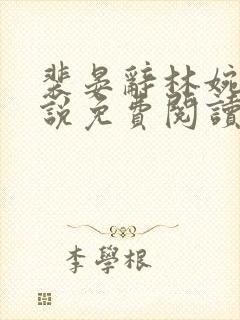 裴晏辭林婉
說免費閱讀
李學根